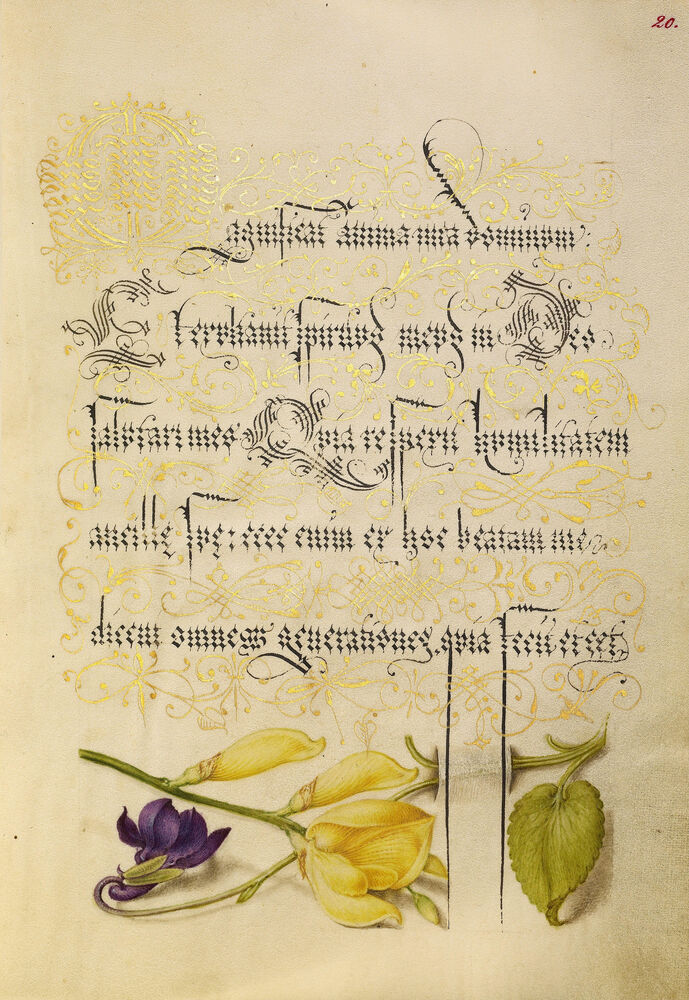 20.
Magnificat anima mea dominum:
Et exultauit spiritus meus in Deo
salutari meo Quia respexit humilitatem
ancillę suę: ecce enim ex hoc beatam me
dicent omnes generationes, quia fecit et cet.